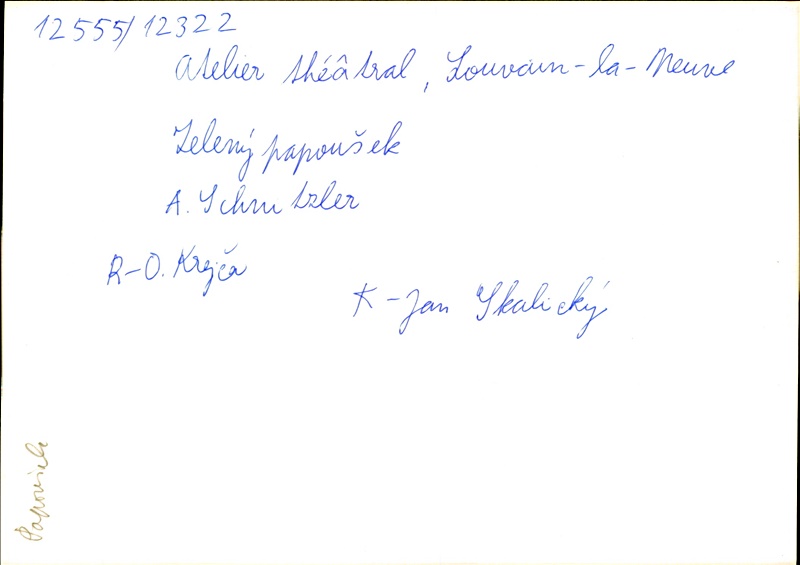 12555/12322
Atelier théâtral, Louvain-la-Neuve
Zelený papoušek
A. Schnitzler
R-O. Krejča
K-Jan Skalický
Papoušek